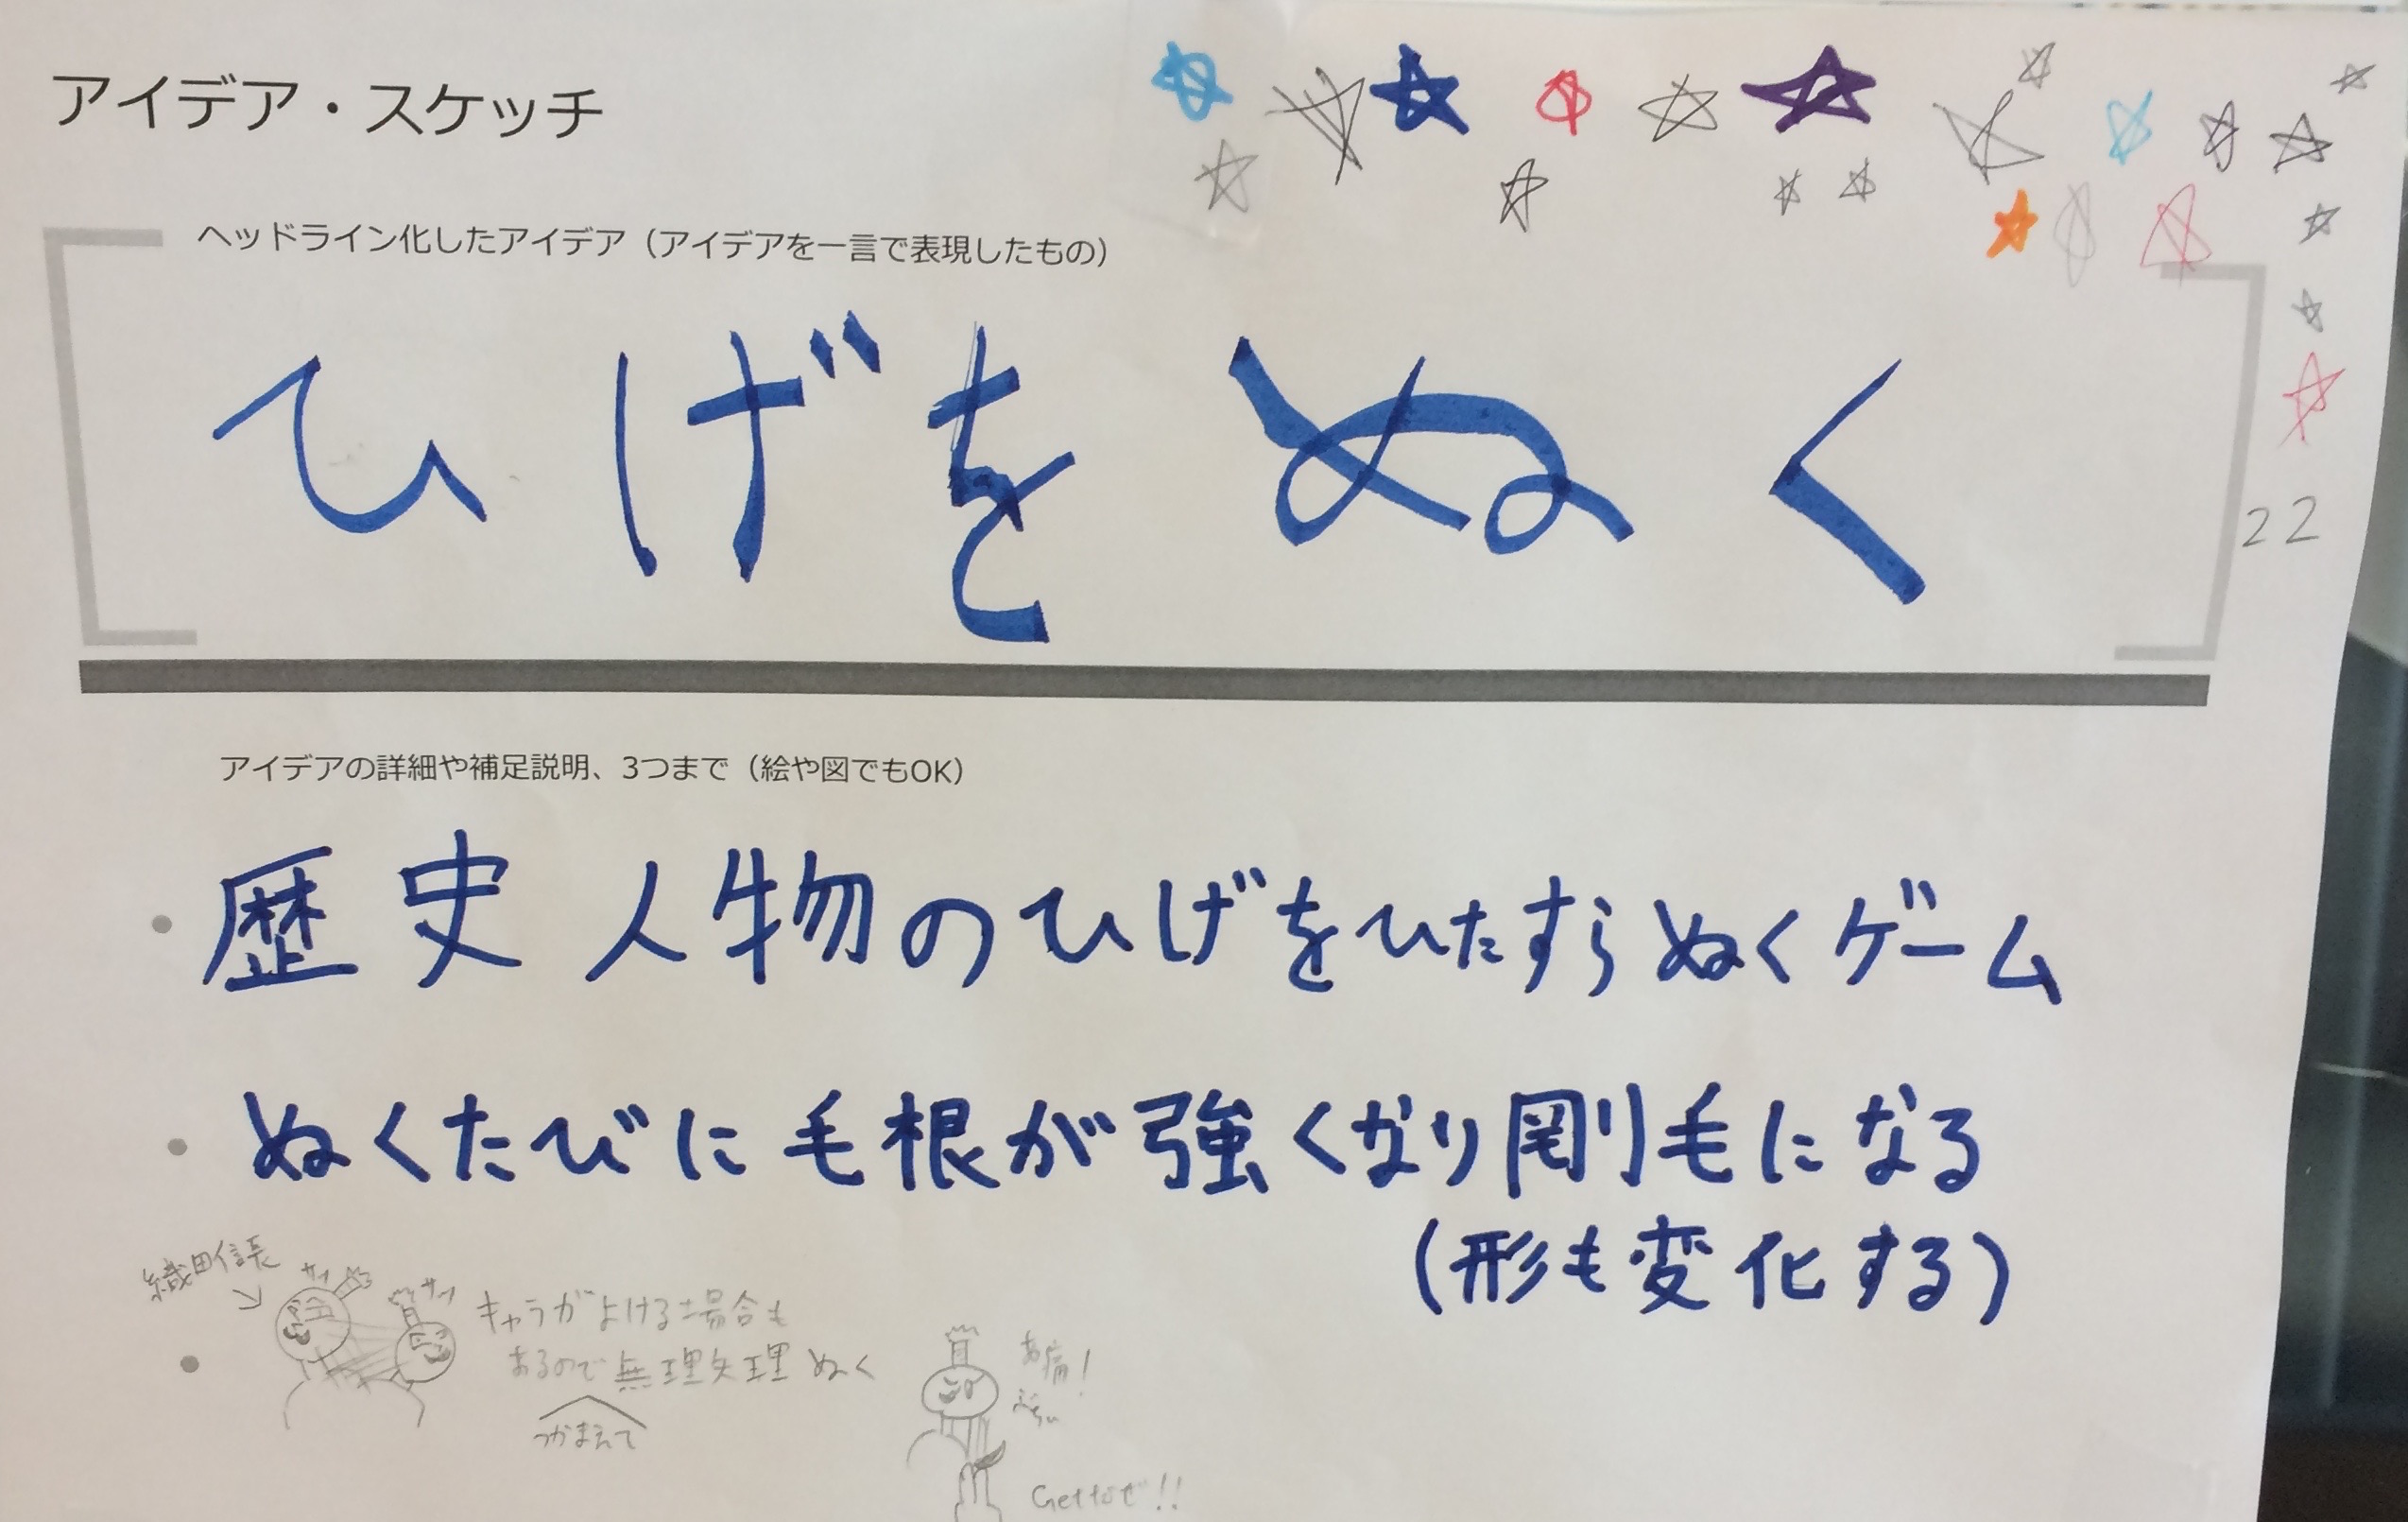 アイデア・スケッチ
ヘッドライン化したアイデア（アイデアを一言で表現したもの）
ひげをぬく
22
アイデアの詳細や補足説明、3つまで（絵や図でもOK）
・歴史人物のひげをひたすらぬくゲーム
・ぬくたびに毛根が強くなり剛毛になる
（形も変化する）
織田信長
サッ
サッ
キャラがよける場合も
あるので無理矢理ぬく
つかまえて
あ痛！
ぶちぃ
Getだぜ!!